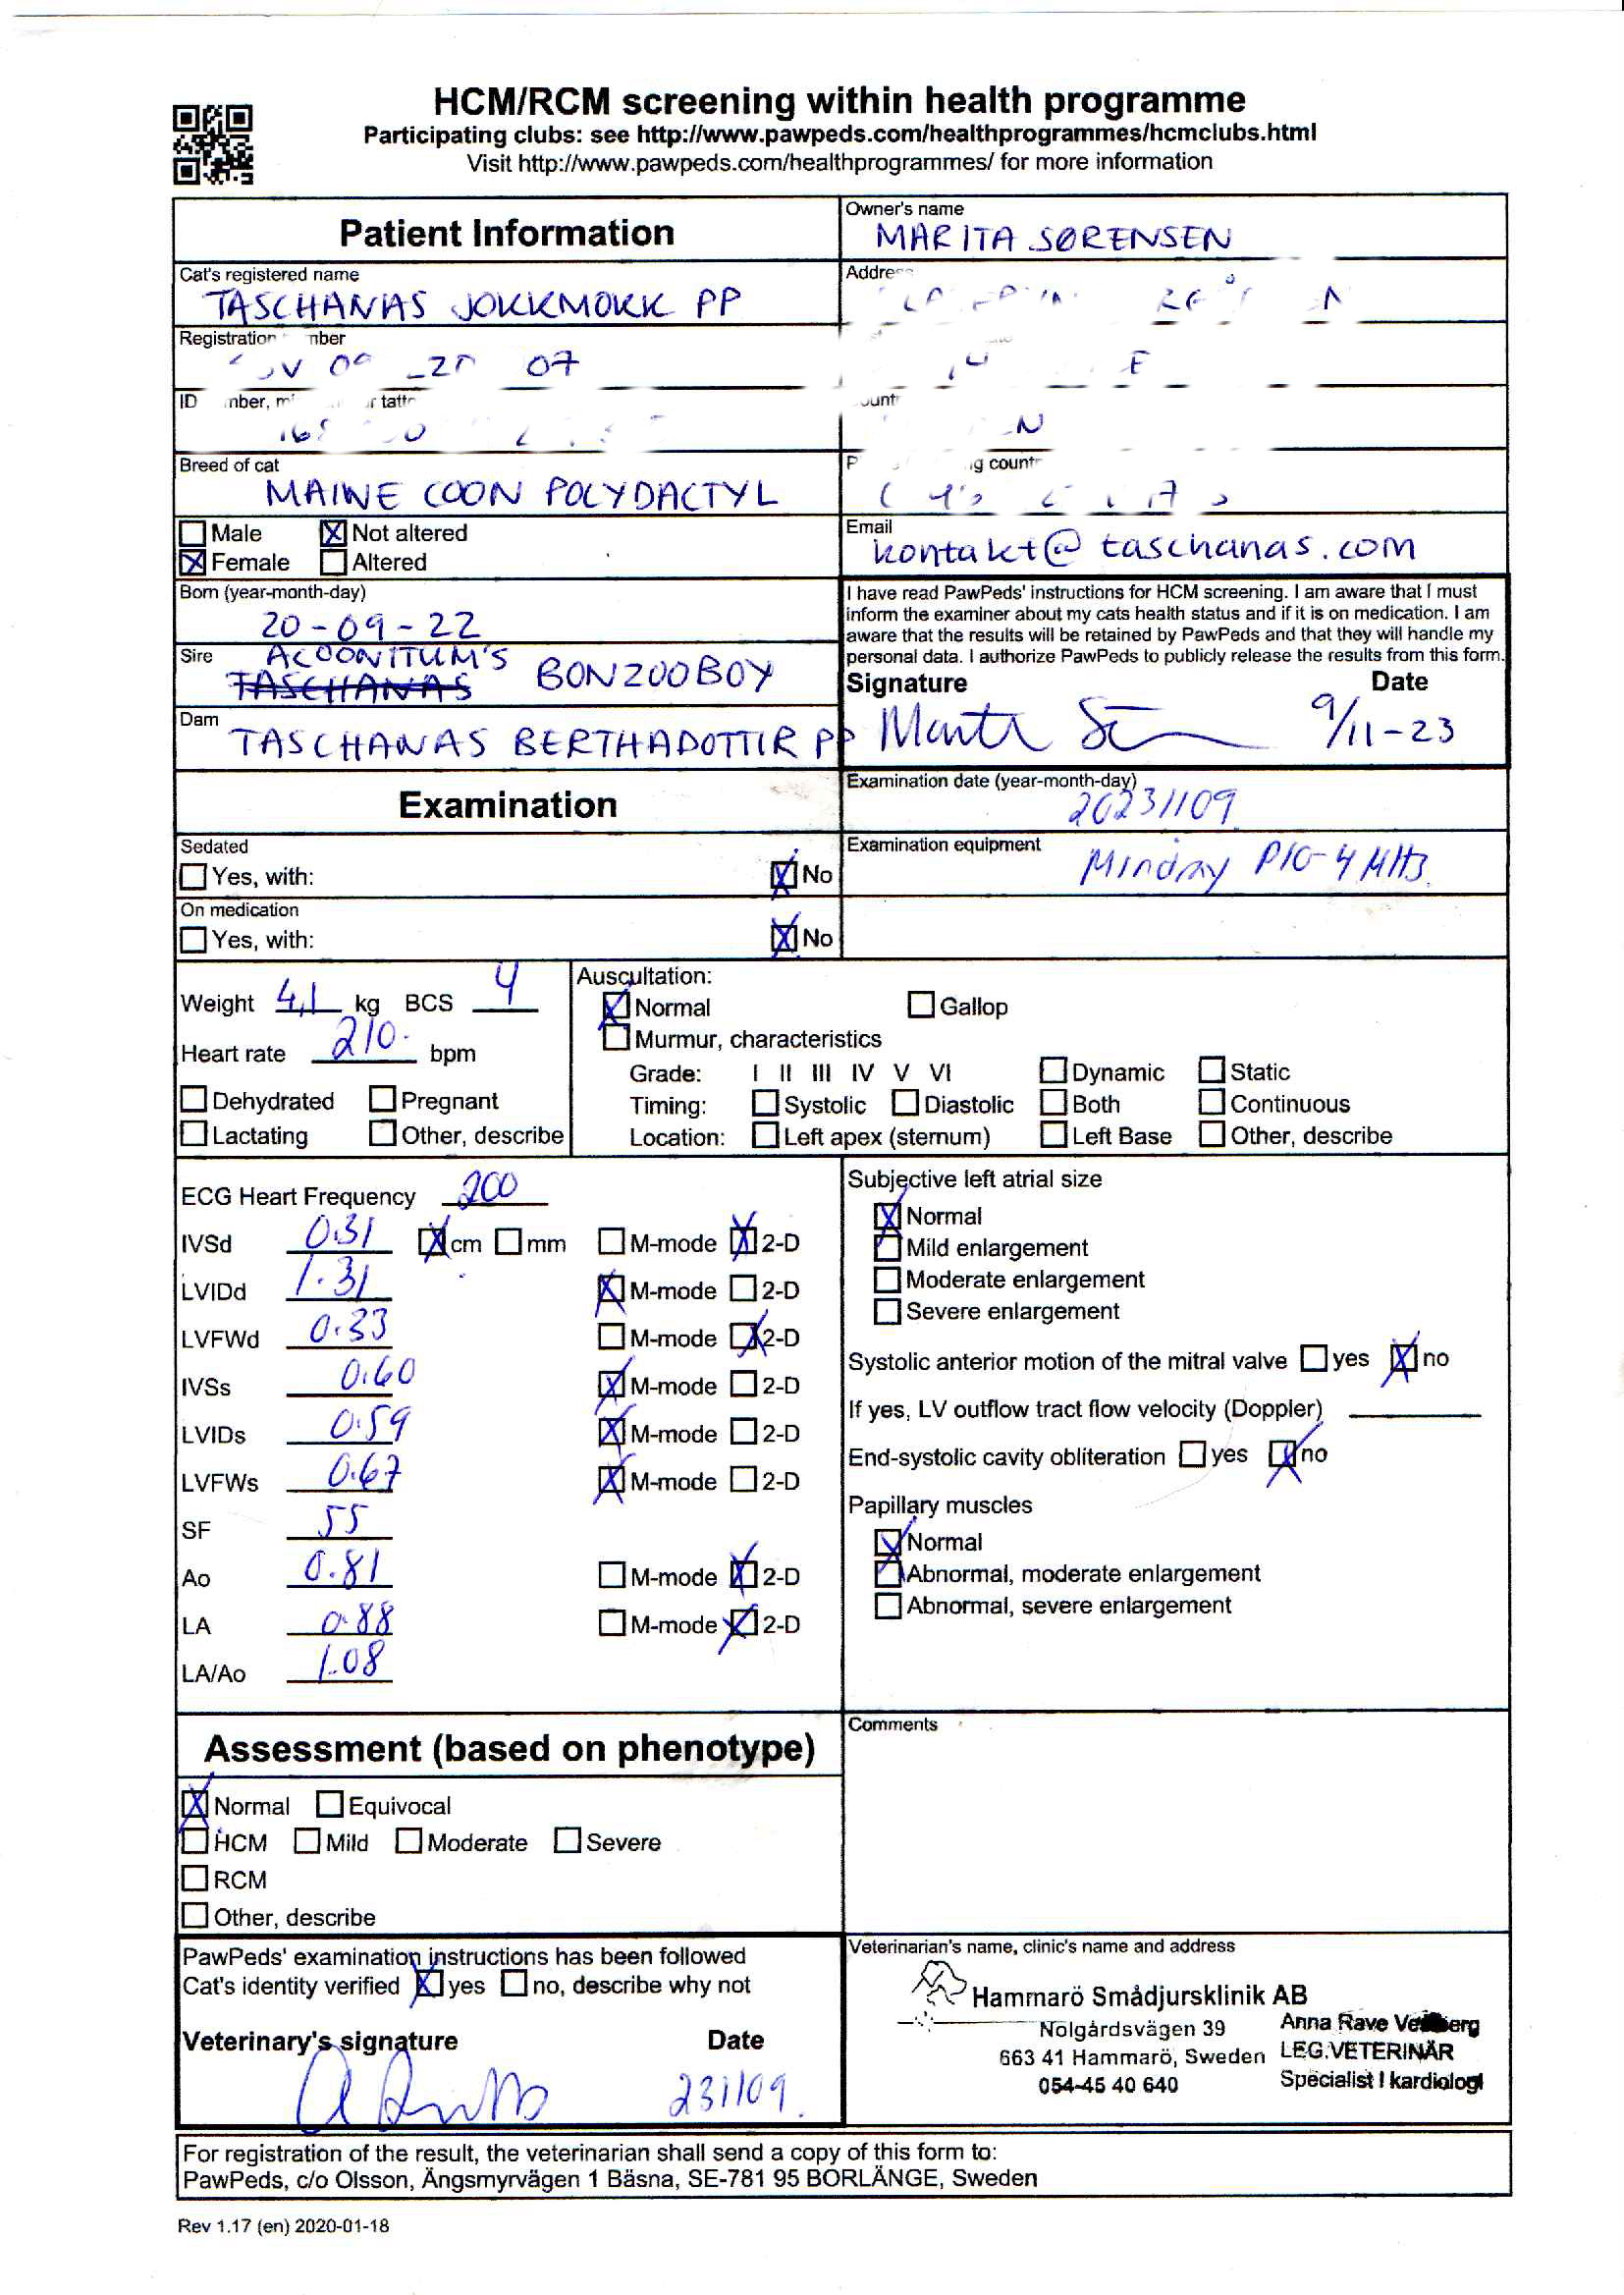 HCM/RCM screening within health programme
Participating clubs: see http://www.pawpeds.com/healthprogrammes/hcmclubs.html
Visit http://www.pawpeds.com/healthprogrammes/ for more information
Patient Information
Owner's name
MARITA SØRENSEN
Cat's registered name
TASCHANAS JOKKMOKK PP
Registration
07
Breed of cat
MAINE COON POLYDACTYL
Male Not altered
Female Altered
Email
kontakt@taschanas.com
Born (year-month-day)
20-09-22
Sire
ACOONITUM'S
TASCHANAS BONZOOBOY
Dam
TASCHANAS BERTHADOTTIR PP
I have read PawPeds' instructions for HCM screening. I am aware that I must
inform the examiner about my cats health status and if it is on medication. I am
aware that the results will be retained by PawPeds and that they will handle my
personal data. I authorize PawPeds to publicly release the results from this form.
Signature Date
9/11-23
Examination
Examination date (year-month-day)
20231109
Sedated
Yes, with: No
Examination equipment
Mindray P10-4 MHz
On medication
Yes, with: No
Weight 4,1 kg BCS 4
Heart rate 210 bpm
Dehydrated Pregnant
Lactating Other, describe
Auscultation:
Normal Gallop
Murmur, characteristics
Grade: I II III IV V VI Dynamic Static
Timing: Systolic Diastolic Both Continuous
Location: Left apex (sternum) Left Base Other, describe
ECG Heart Frequency 200
IVSd 0.31 cm mm M-mode 2-D
LVIDd 1.31 M-mode 2-D
LVFWd 0.33 M-mode 2-D
IVSs 0.60 M-mode 2-D
LVIDs 0.59 M-mode 2-D
LVFWs 0.67 M-mode 2-D
SF 55
Ao 0.81 M-mode 2-D
LA 0.88 M-mode 2-D
LA/Ao 1.08
Subjective left atrial size
Normal
Mild enlargement
Moderate enlargement
Severe enlargement
Systolic anterior motion of the mitral valve yes no
If yes, LV outflow tract flow velocity (Doppler)
End-systolic cavity obliteration yes no
Papillary muscles
Normal
Abnormal, moderate enlargement
Abnormal, severe enlargement
Assessment (based on phenotype)
Normal Equivocal
HCM Mild Moderate Severe
RCM
Other, describe
Comments
PawPeds' examination instructions has been followed
Cat's identity verified yes no, describe why not
Veterinary's signature Date
231109
Veterinarian's name, clinic's name and address
Hammarö Smådjursklinik AB
Nolgårdsvägen 39
663 41 Hammarö, Sweden
054-45 40 640
Anna Rave
LEG.VETERINÄR
Specialist I kardiologi
For registration of the result, the veterinarian shall send a copy of this form to:
PawPeds, c/o Olsson, Ängsmyrvägen 1 Bäsna, SE-781 95 BORLÄNGE, Sweden
Rev 1.17 (en) 2020-01-18